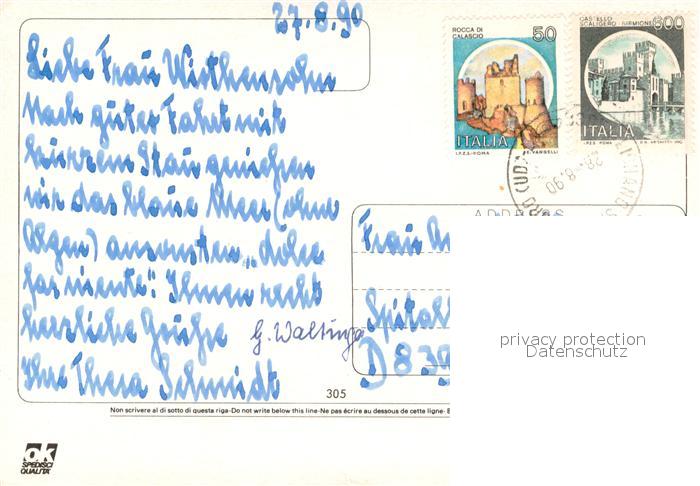 27.8.90
Liebe Frau Wirthensohn
Nach guter Fahrt mit
kurzem Stau genießen
wir das blaue Meer (ohne
Algen) ansonsten „dolce
far niente“. Ihnen recht
herzliche Grüße
Ihre Thera Schmidt
G. Waltinge
ROCCA DI
CALASCIO
50
ITALIA
I.P.Z.S.-ROMA
E. VANGELLI
CASTELLO
SCALIGERO (SIRMIONE)
600
ITALIA
I.P.Z.S. ROMA
28.8.90
(UD
ADDRESS
Frau
D 8
305
Non scrivere al di sotto di questa riga-Do not write below this line-Ne pas écrire au dessous de cette ligne-
ok
SPEDISCI
QUALITA'
privacy protection
Datenschutz